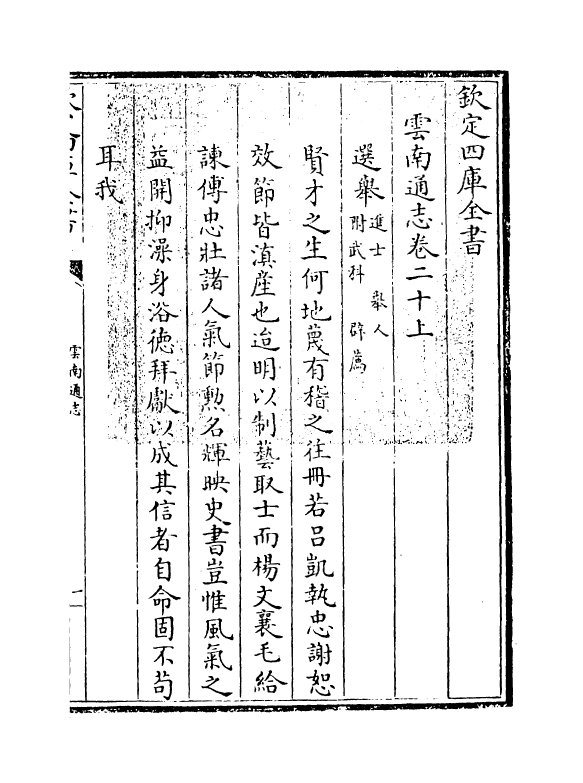 欽定四庫全書
雲南通志卷二十上
選舉進士 舉人 附武科 辟薦
賢才之生何地蔑有稽之往冊若呂凱執忠謝恕
效節皆滇産也迨明以制藝取士而楊文襄毛給
諫傅忠壯諸人氣節勲名輝映史書豈惟風氣之
益開抑澡身浴徳拜獻以成其信者自命固不茍
耳我
雲南通志